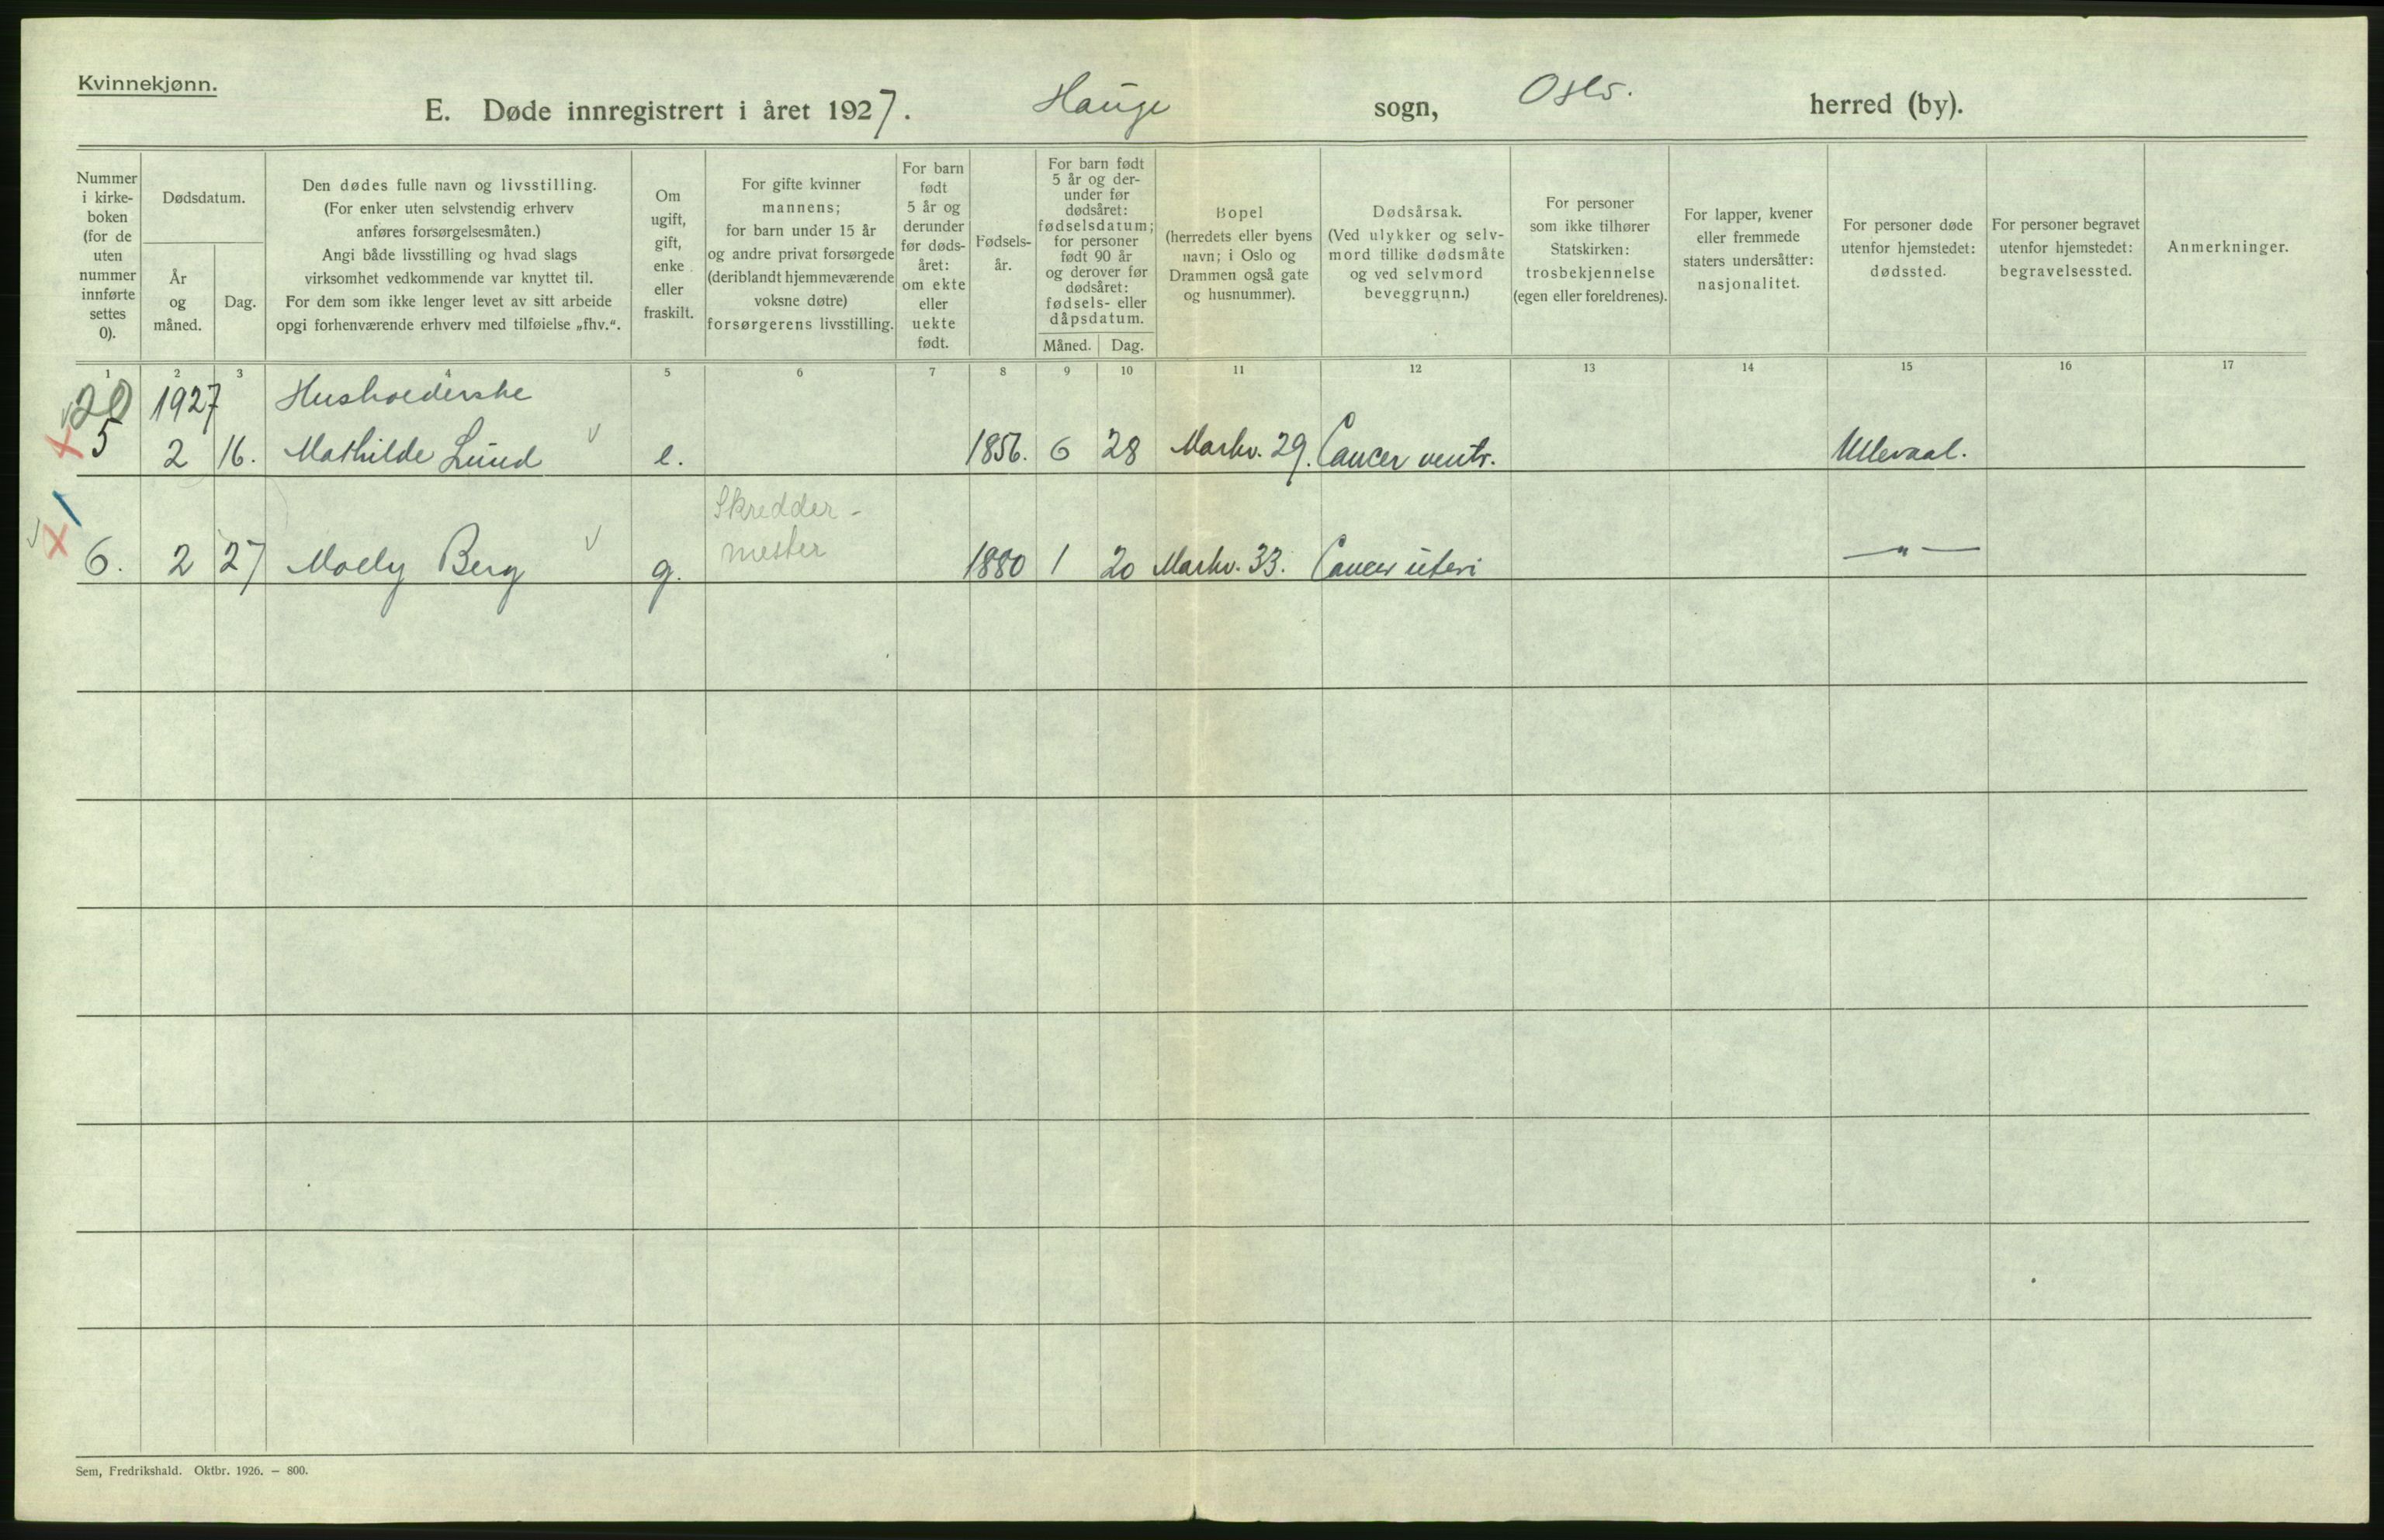 Kvinnekjønn.
E. Døde innregistrert i året 1927. Hauge sogn, Oslo. herred (by).
Nummer i kirkeboken (for de uten nummer innførte settes 0).
Dødsdatum.
År og måned.
Dag.
Den dødes fulle navn og livsstilling.
(For enker uten selvstendig erhverv
anføres forsørgelsesmåten.)
Angi både livsstilling og hvad slags
virksomhet vedkommende var knyttet til.
For dem som ikke lenger levet av sitt arbeide
opgi forhenværende erhverv med tilføielse „fhv.“.
Om
ugift,
gift,
enke
eller
fraskilt.
For gifte kvinner
mannens;
for barn under 15 år
og andre privat forsørgede
(deriblandt hjemmeværende
voksne døtre)
forsørgerens livsstilling.
For barn
født
5 år og
derunder
før døds-
året:
om ekte
eller
uekte
født.
Fødsels-
år.
For barn født
5 år og der-
under før
dødsåret:
fødselsdatum;
for personer
født 90 år
og derover før
dødsåret:
fødsels- eller
dåpsdatum.
Måned. Dag.
Bopel
(herredets eller byens
navn; i Oslo og
Drammen også gate
og husnummer).
Dødsårsak.
(Ved ulykker og selv-
mord tillike dødsmåte
og ved selvmord
beveggrunn.)
For personer
som ikke tilhører
Statskirken:
trosbekjennelse
(egen eller foreldrenes).
For lapper, kvener
eller fremmede
staters undersåtter:
nasjonalitet.
For personer døde
utenfor hjemstedet:
dødssted.
For personer begravet
utenfor hjemstedet:
begravelsessted.
Anmerkninger.
1 2 3 4 5 6 7 8 9 10 11 12 13 14 15 16 17
20 1927 Husholderske
5 2 16. Mathilde Lund e. 1856. 6 28 Markv. 29. Cancer ventr. Ullevaal.
Skredder-
mester
6. 2 27 Moely Berg g. 1880 1 20 Markv. 33. Cancer uteri —"—
Sem, Fredrikshald. Oktbr. 1926. — 800.